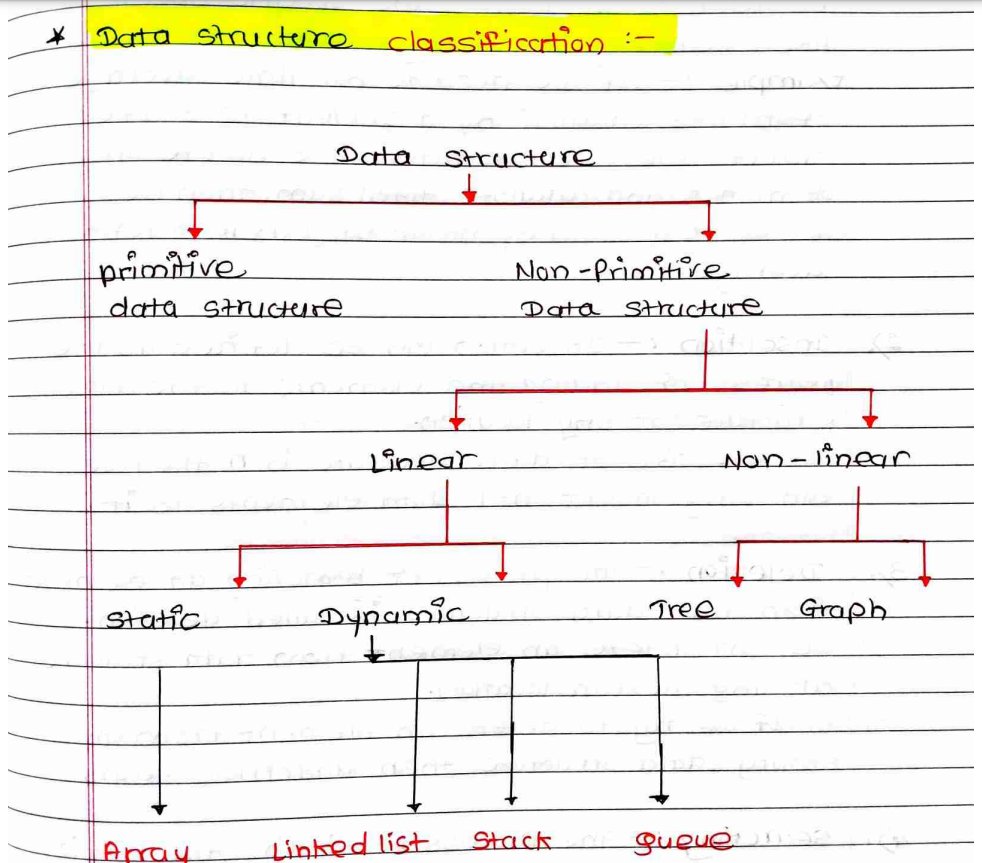 * Data structure classification :-
Data structure
primitive Non-Primitive
data structure Data structure
Linear Non-linear
Static Dynamic Tree Graph
Array Linked list Stack Queue